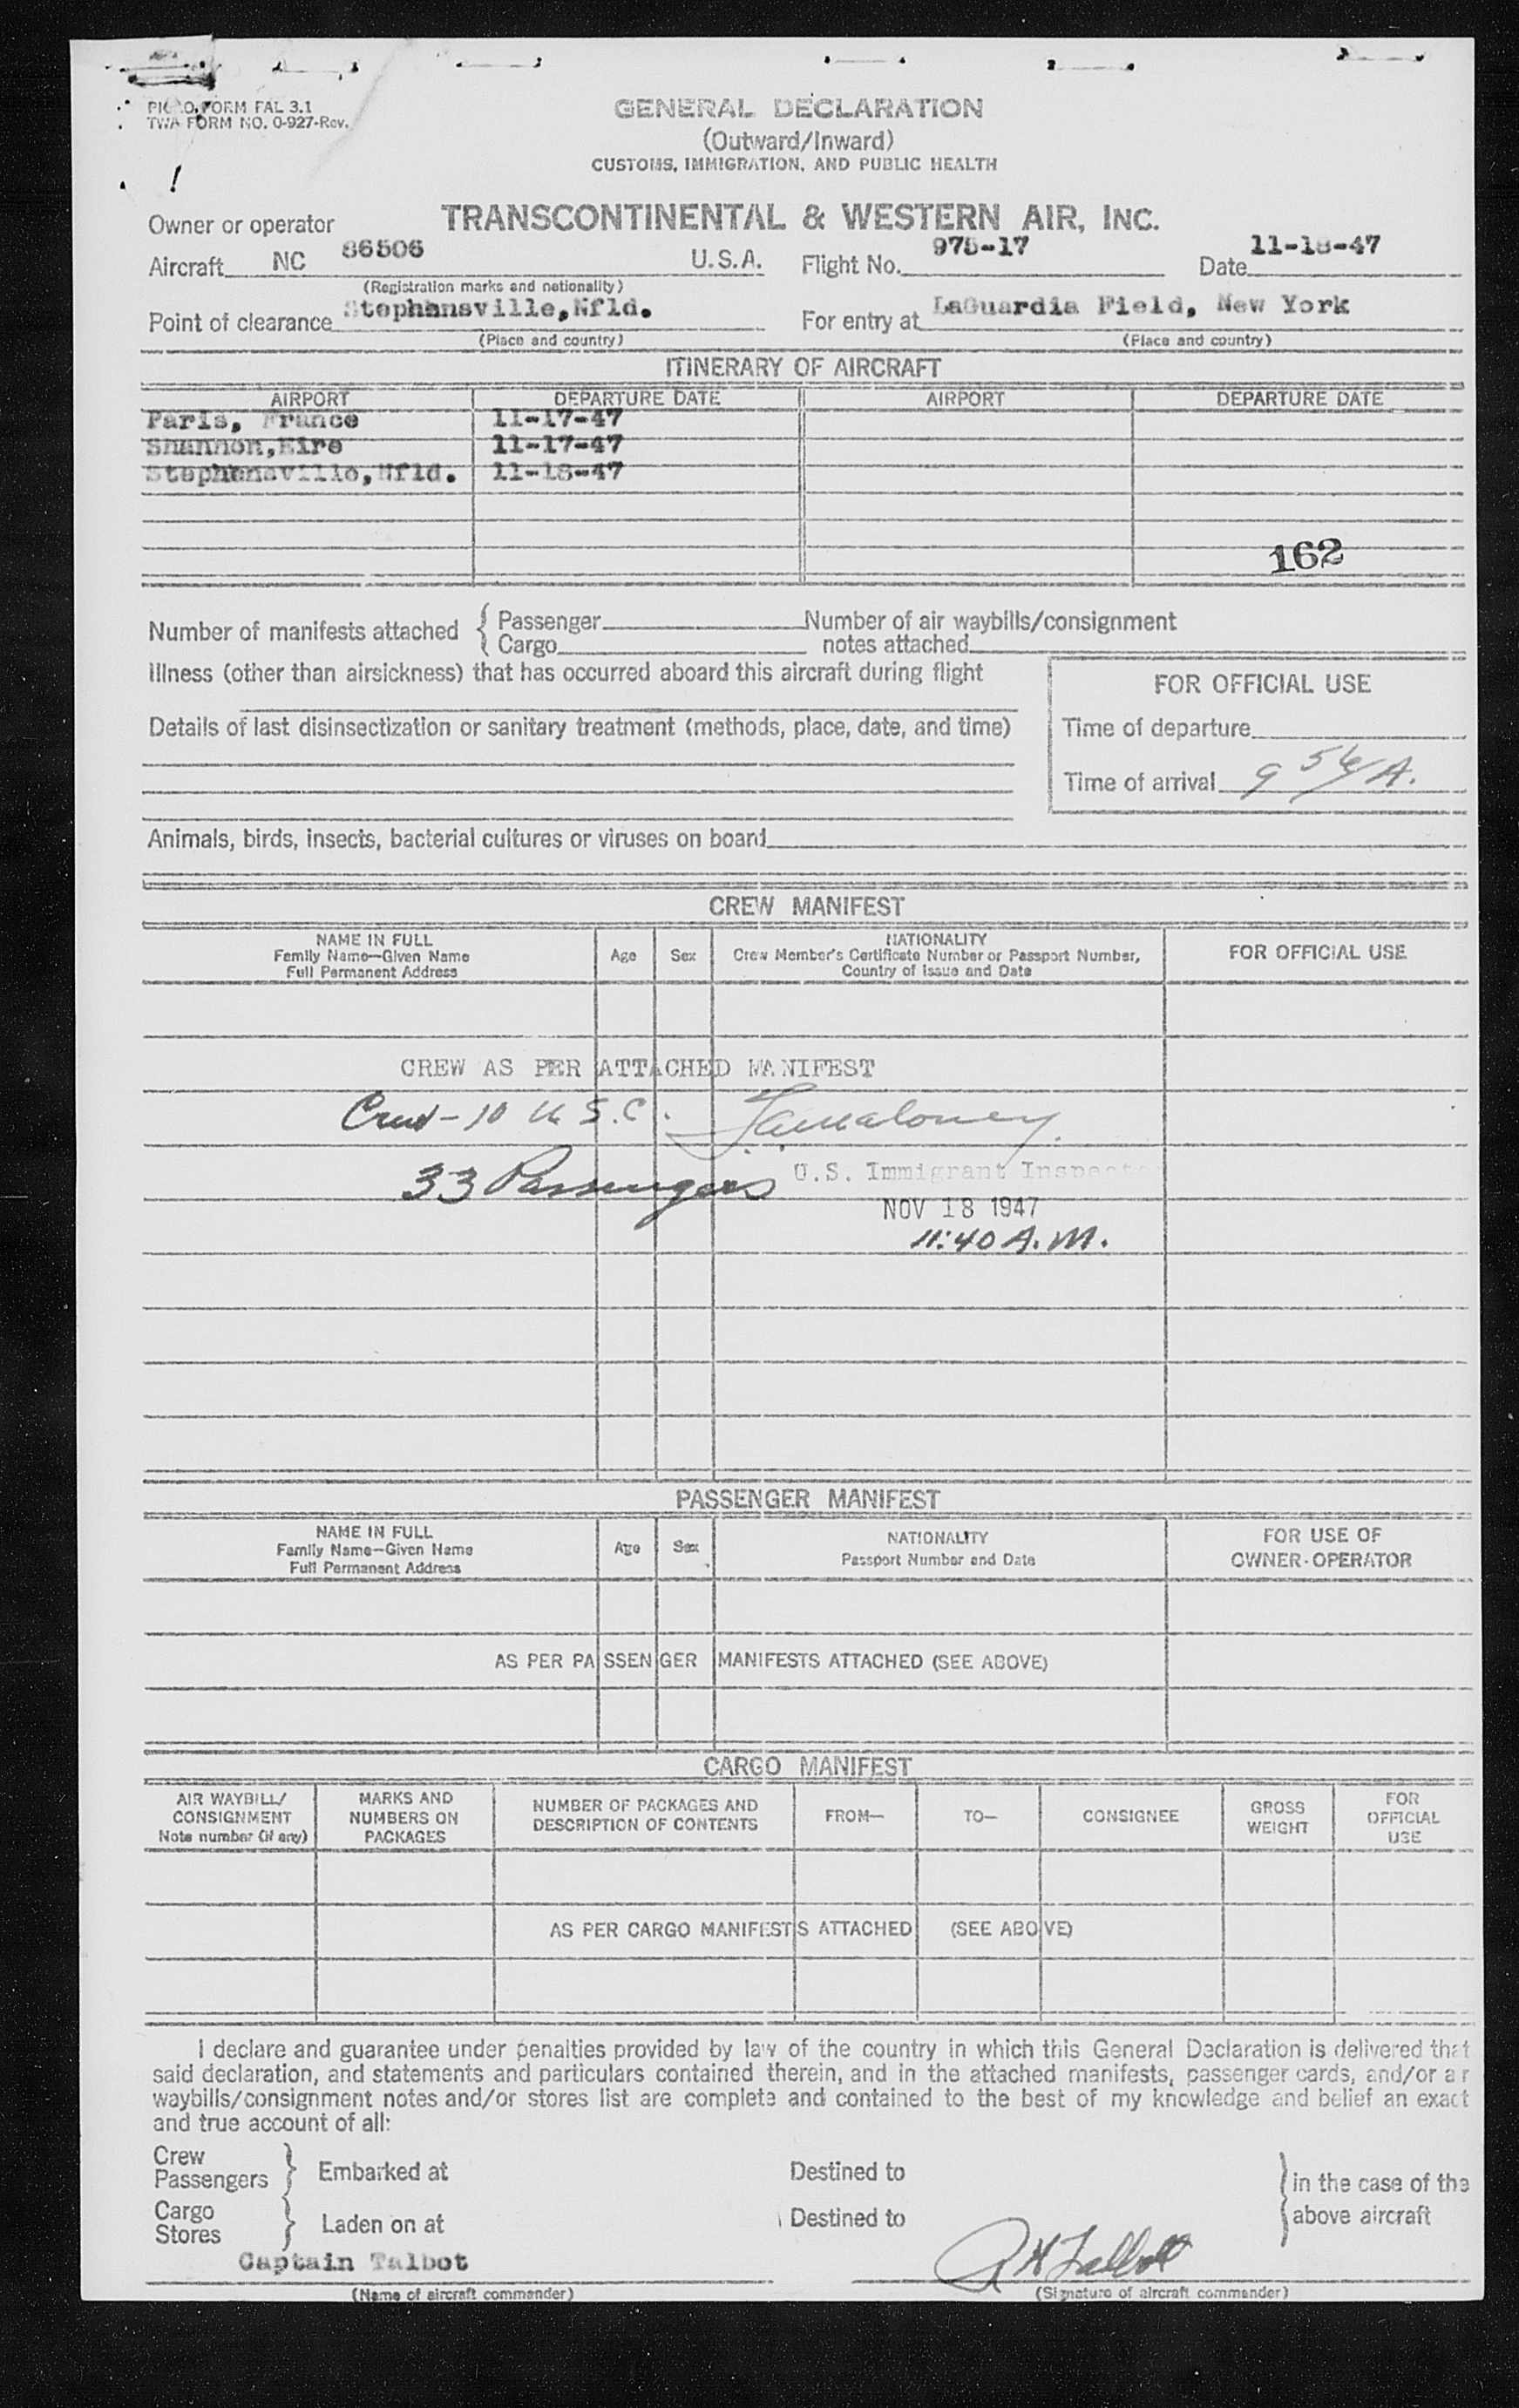 FORM FAL 3.1
TWA FORM NO. O-927-Rev.
GENERAL DECLARATION
(Outward/Inward)
CUSTOMS, IMMIGRATION, AND PUBLIC HEALTH
Owner or operator TRANSCONTINENTAL & WESTERN AIR, INC.
Aircraft NC 86506 U.S.A. Flight No. 975-17 Date 11-18-47
(Registration marks and nationality)
Point of clearance Stephensville,Nfld. For entry at LaGuardia Field, New York
(Place and country) (Place and country)
ITINERARY OF AIRCRAFT
AIRPORT DEPARTURE DATE AIRPORT DEPARTURE DATE
Paris, France 11-17-47
Shannon,Eire 11-17-47
Stephensville,Nfld. 11-18-47
162
Number of manifests attached { Passenger Number of air waybills/consignment
Cargo notes attached
Illness (other than airsickness) that has occurred aboard this aircraft during flight
FOR OFFICIAL USE
Details of last disinsectization or sanitary treatment (methods, place, date, and time)
Time of departure
Time of arrival 9 56/A.
Animals, birds, insects, bacterial cultures or viruses on board
CREW MANIFEST
NAME IN FULL
Family Name—Given Name
Full Permanent Address
Age Sex
NATIONALITY
Crew Member's Certificate Number or Passport Number,
Country of Issue and Date
FOR OFFICIAL USE
CREW AS PER ATTACHED MANIFEST
Crew - 10 U.S.C.
33 Passengers
U.S. Immigrant Inspector
NOV 18 1947
11:40 A.M.
PASSENGER MANIFEST
NAME IN FULL
Family Name—Given Name
Full Permanent Address
Age Sex
NATIONALITY
Passport Number and Date
FOR USE OF
OWNER-OPERATOR
AS PER PASSENGER MANIFESTS ATTACHED (SEE ABOVE)
CARGO MANIFEST
AIR WAYBILL/
CONSIGNMENT
Note number (if any)
MARKS AND
NUMBERS ON
PACKAGES
NUMBER OF PACKAGES AND
DESCRIPTION OF CONTENTS
FROM— TO— CONSIGNEE
GROSS
WEIGHT
FOR
OFFICIAL
USE
AS PER CARGO MANIFESTS ATTACHED (SEE ABOVE)
I declare and guarantee under penalties provided by law of the country in which this General Declaration is delivered that
said declaration, and statements and particulars contained therein, and in the attached manifests, passenger cards, and/or air
waybills/consignment notes and/or stores list are complete and contained to the best of my knowledge and belief an exact
and true account of all:
Crew
Passengers } Embarked at Destined to
in the case of the
Cargo
Stores } Laden on at Destined to
above aircraft
Captain Talbot R H Talbot
(Name of aircraft commander) (Signature of aircraft commander)